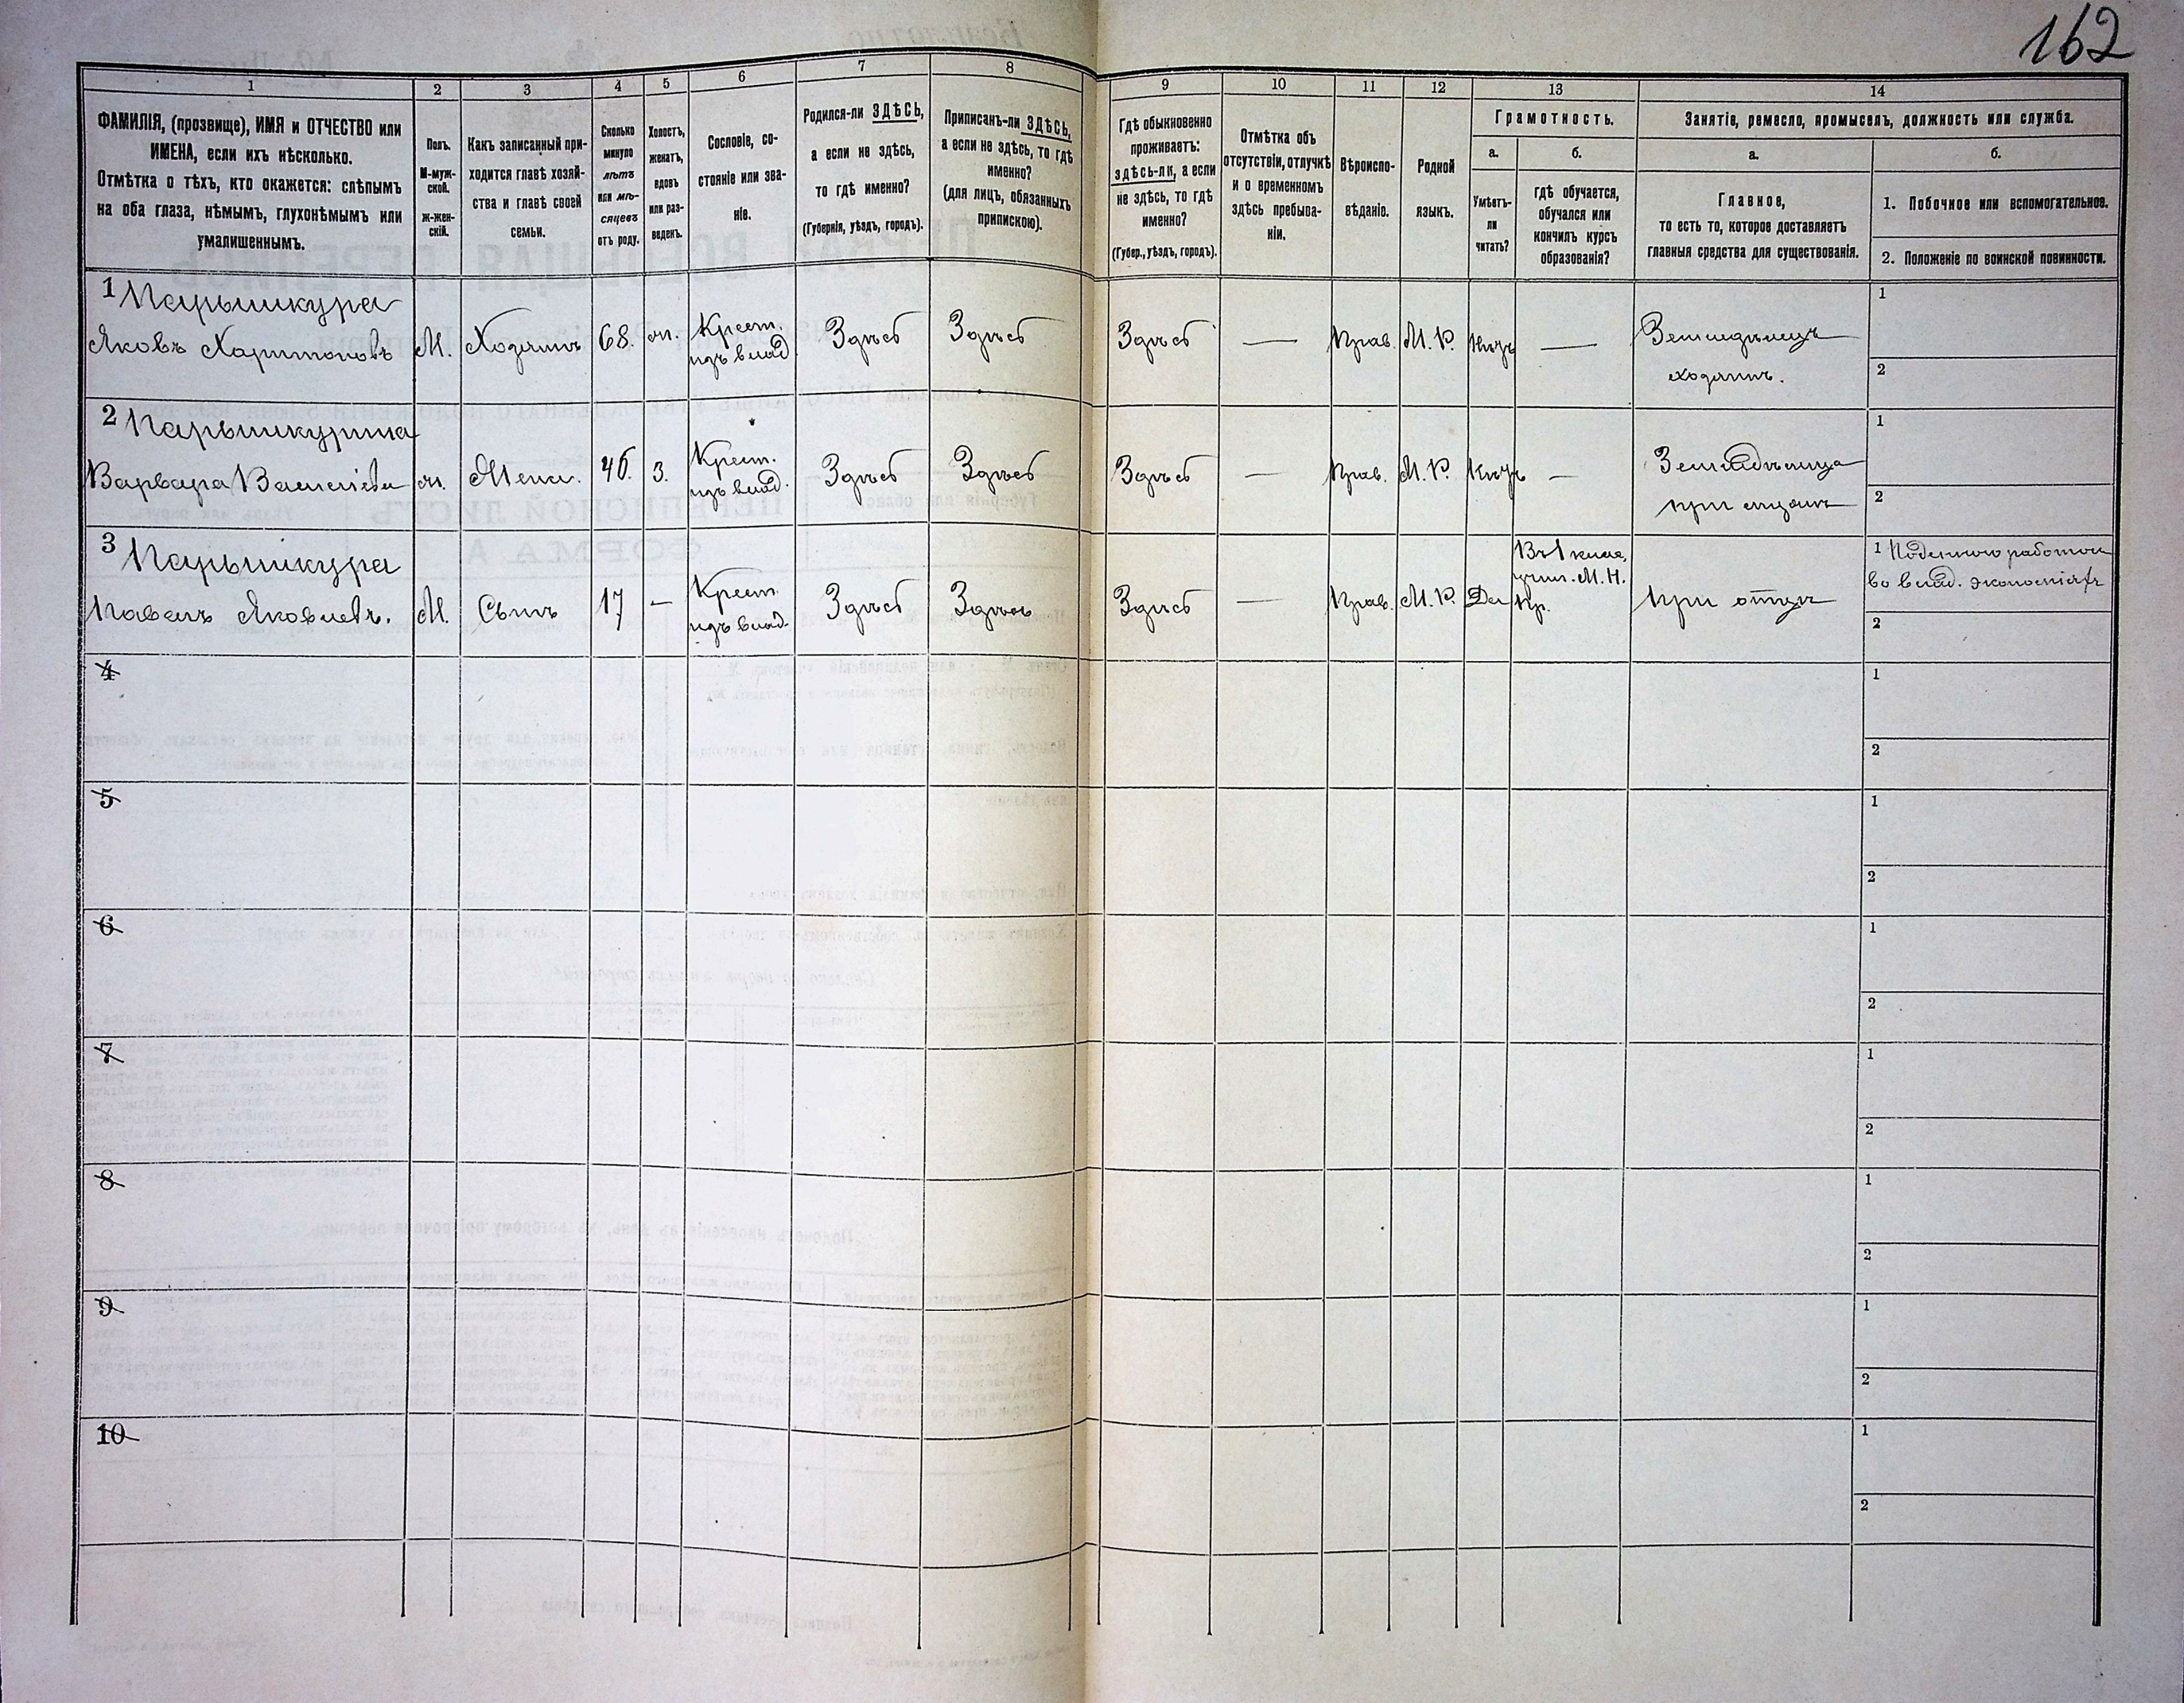 162
1
2
3
4
5
6
7
8
9
10
11
12
13
14
ФАМИЛІЯ, (прозвище), ИМЯ и ОТЧЕСТВО или
ИМЕНА, если ихъ нѣсколько.
Отмѣтка о тѣхъ, кто окажется: слѣпымъ
на оба глаза, нѣмымъ, глухонѣмымъ или
умалишеннымъ.
Полъ.
М-муж-
ской.
ж-жен-
скій.
Какъ записанный при-
ходится главѣ хозяй-
ства и главѣ своей
семьи.
Сколько
минуло
лѣтъ
или мѣ-
сяцевъ
отъ роду.
Холостъ,
женатъ,
вдовъ
или раз-
веденъ.
Сословіе, со-
стояніе или зва-
ніе.
Родился-ли ЗДѢСЬ,
а если не здѣсь,
то гдѣ именно?
(Губернія, уѣздъ, городъ).
Приписанъ-ли ЗДѢСЬ,
а если не здѣсь, то гдѣ
именно?
(для лицъ, обязанныхъ
припискою).
Гдѣ обыкновенно
проживаетъ:
здѣсь-ли, а если
не здѣсь, то гдѣ
именно?
(Губер., уѣздъ, городъ).
Отмѣтка объ
отсутствіи, отлучкѣ
и о временномъ
здѣсь пребыва-
ніи.
Вѣроиспо-
вѣданіе.
Родной
языкъ.
Грамотность.
а.
Умѣетъ-
ли
читать?
б.
гдѣ обучается,
обучался или
кончилъ курсъ
образованія?
Занятіе, ремесло, промыселъ, должность или служба.
а.
Главное,
то есть то, которое доставляетъ
главныя средства для существованія.
б.
1. Побочное или вспомогательное.
2. Положеніе по воинской повинности.
1 Парышкура
Яковъ Харитоновъ
М.
Хозяинъ
68.
ж.
Крест.
изъ влад.
Здѣсь
Здѣсь
Здѣсь
—
Прав.
М. Р.
Нѣтъ
—
Земледѣлецъ
хозяинъ.
1
2
2 Парышкурина
Варвара
ж.
Жена.
46.
З.
Крест.
изъ влад.
Здѣсь
Здѣсь
Здѣсь
—
Прав.
М. Р.
Нѣтъ
—
при мужѣ
1
2
3 Парышкура
Павелъ Яковлевъ.
М.
Сынъ
17
—
Крест.
изъ влад.
Здѣсь
Здѣсь
Здѣсь
—
Прав.
М. Р.
Да
Въ 1 клас.
учил. М. Н.
Пр.
При отцѣ
1 Поденного работою
во влад. экономіяхъ
2
4
1
2
5
1
2
6
1
2
7
1
2
8
1
2
9
1
2
10
1
2